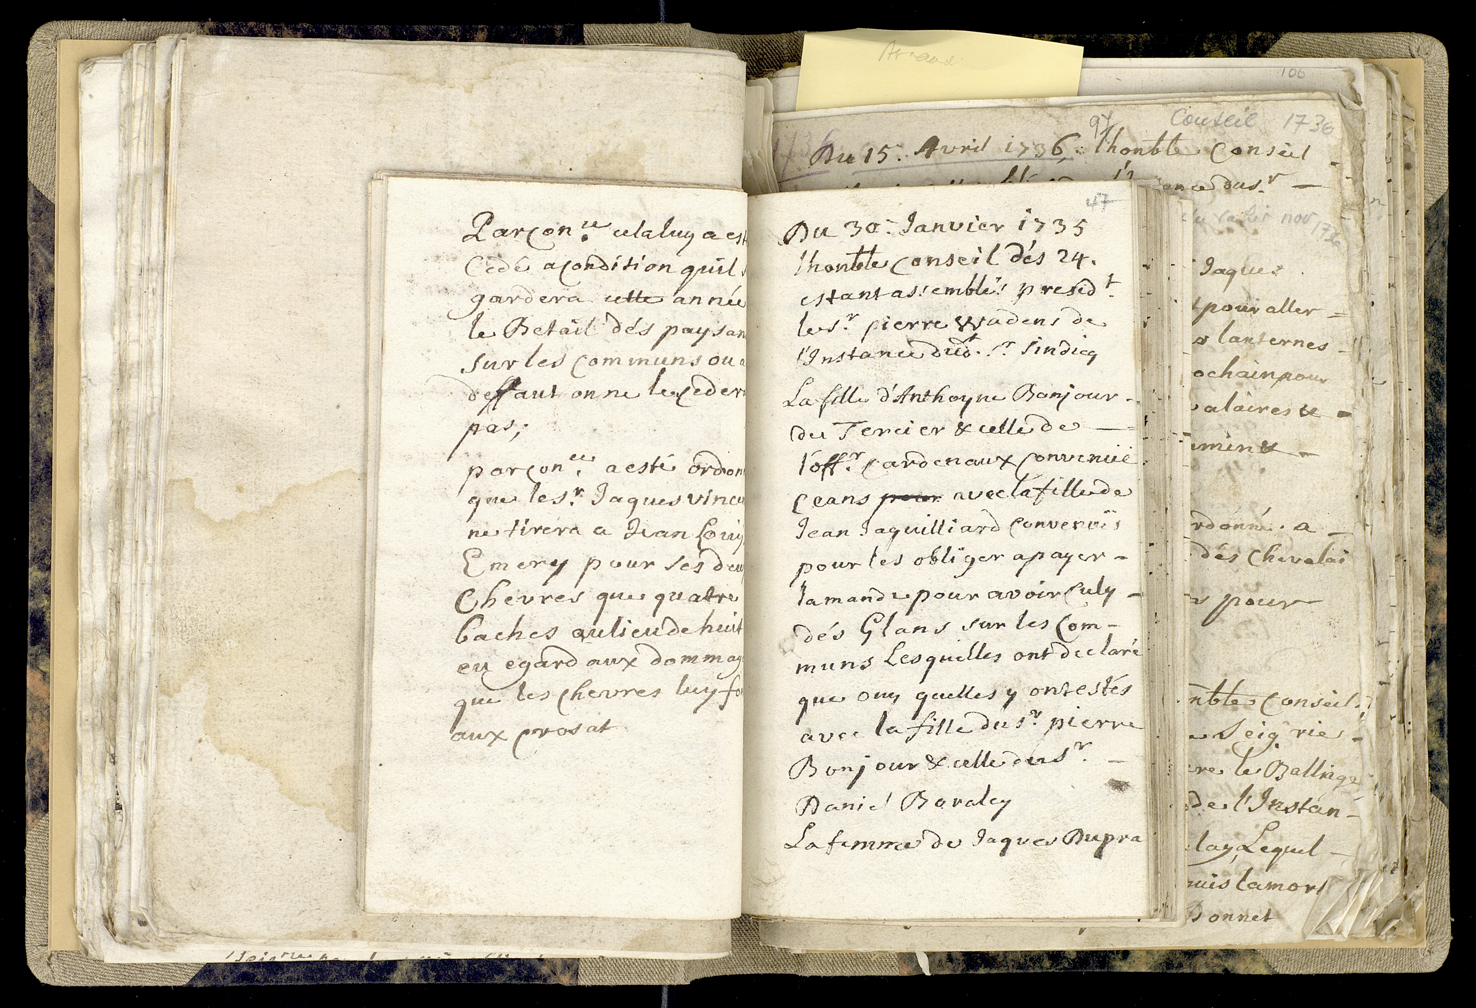 Parcon.lle celaluy a est
Cédé a condition quil
gardera cette année
le Betail dés paysan
sur les communs ou a
deffaut on ne le ceder
pas;
parcon.lle a esté ordon
que le sr. Jaques vince
ne tirera a Jean Louy
Emery pour ses deu
Chevres que quatre
baches au lieu de huit
eu egard aux dommag
que les chevres luy fo
aux prosat
47
Du 30. Janvier 1735
lhonble conseil dés 24.
estant assemblés presidt.
le sr. pierre Wadens de
l'Instance dudt. sr. Sindicq
La fille d'Anthoyne Bonjour -
du Tercier & celle de —
l'offr. Cardenaux Convenüe
ceans pour avec la fille de
Jean Jaquilliard Convenüs
pour les obliger a payer -
lamande pour avoir Culy -
dés Glans sur les Com-
muns Lesquelles ont declaré
que ouy quelles y ont estés
avec la fille du sr. pierre
Bonjour & celle du sr. —
Daniel Bavaley
La femme de Jaques Dupra
106
97
Conseil 1736
Du 15. Avril 1736. lhonble Conseil
Jaques
pour aller -
lanternes -
ochain pour
alaires
rdonné. a -
dés Chevalai
pour
nble Conseil
Seigrie -
re le Ballinge
de l'Instan-
lay Lequel -
uis lamort
Bonnet